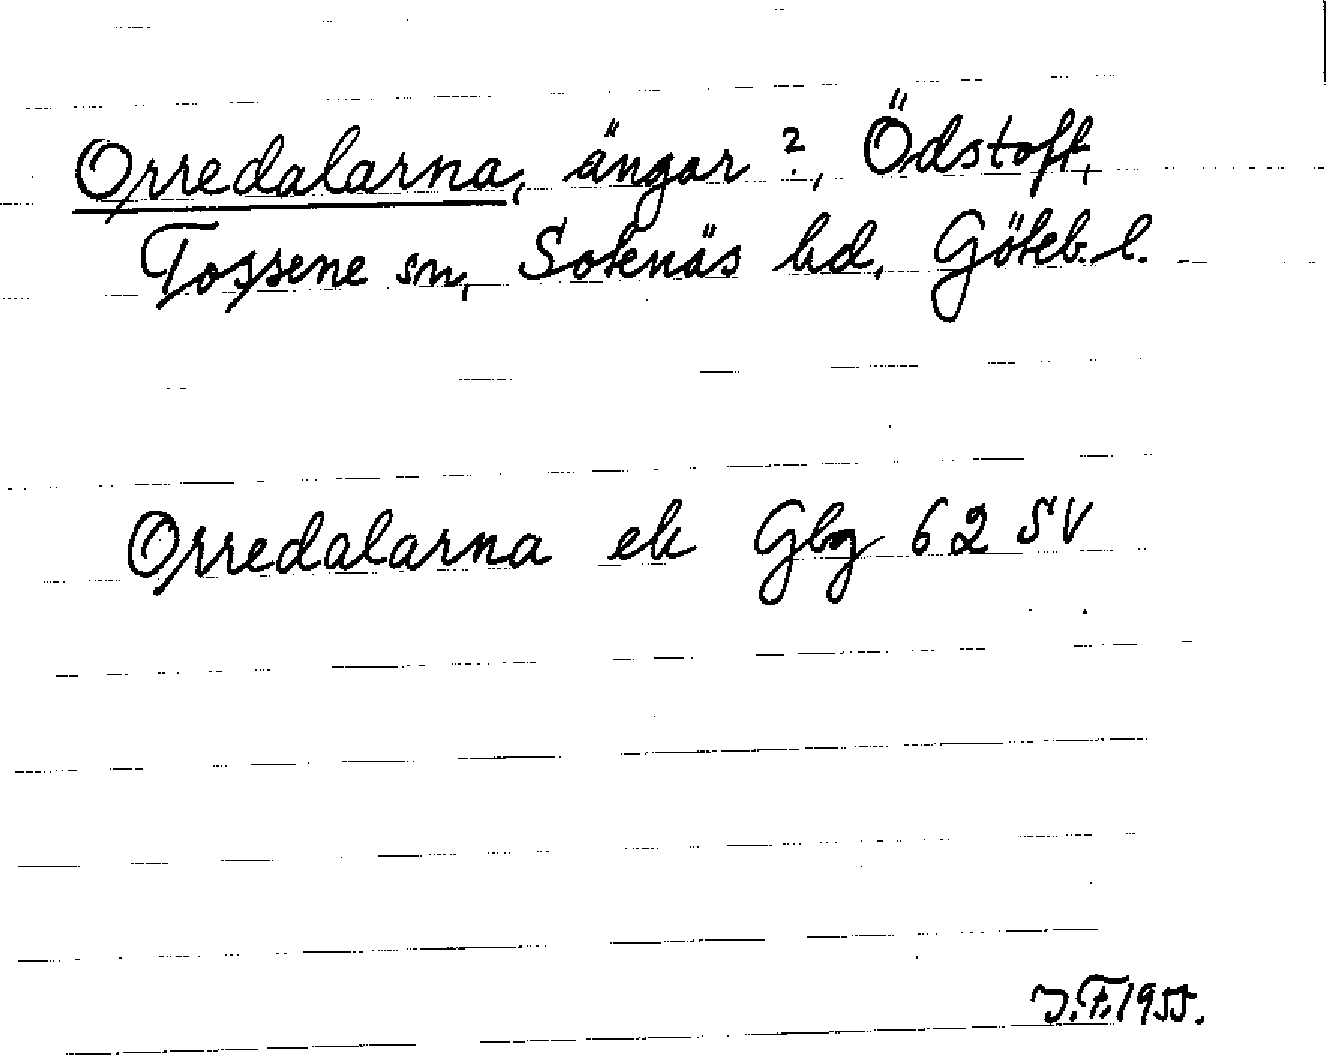 Orredalarna, ängar ?, Ödstoft,
Tossene sn, Sotenäs hd, Göteb. l.
Orredalarna ek Gbg 62 SV
J.F. 1955.